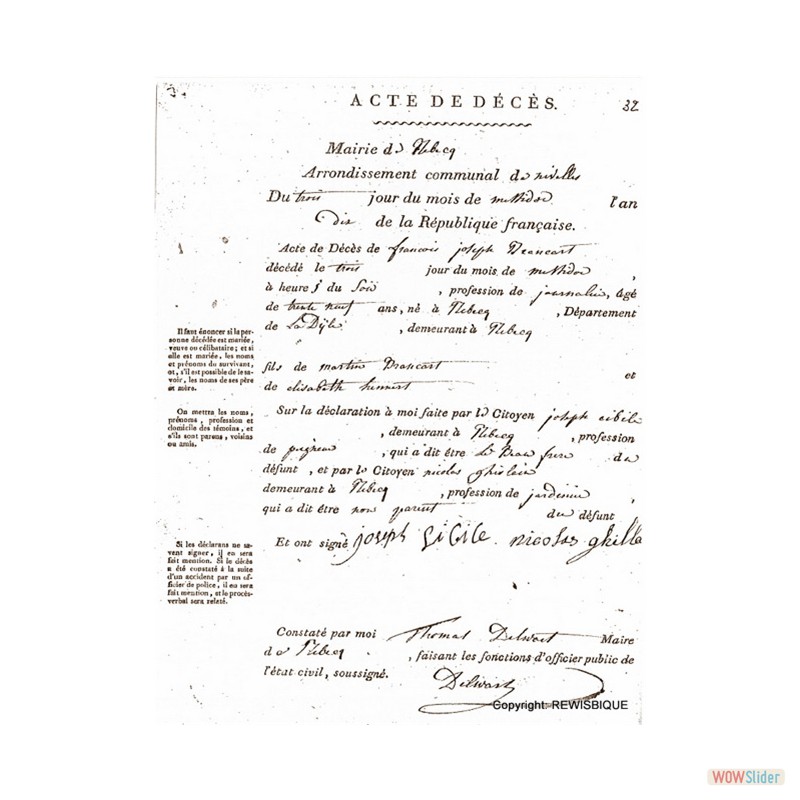 ACTE DE DÉCÈS. 32
Mairie de Rebecq
Arrondissement communal de nivelles
Du trois jour du mois de messidor l'an
Dix de la République française.
Acte de Décès de francois joseph Brancart
décédé le trois jour du mois de messidor ,
à heure 5 du Soir , profession de journalier, âgé
de trente neuf ans, né à Rebecq , Département
de La Dÿle , demeurant à Rebecq
fils de martin Brancart et
de elisabeth
Sur la déclaration à moi faite par le Citoyen joseph cibile
, demeurant à Rebecq , profession
de peigneur , qui a dit être Le Beau frere du
défunt , et par le Citoyen nicolas ghislain
demeurant à Rebecq , profession de jardinier ,
qui a dit être non parent du défunt
Et ont signé joseph Sibile nicolas
Constaté par moi Thomas Delwart Maire
de Rebecq , faisant les fonctions d'officier public de
l'état civil, soussigné. Delwart
Il faut énoncer si la per-
sonne décédée est mariée,
veuve ou célibataire; et si
elle est mariée, les noms
et prénoms du survivant,
et, s'il est possible de le sa-
voir, les noms de ses père
et mère.
On mettra les noms,
prénoms, profession et
domicile des témoins, et
s'ils sont parens, voisins
ou amis.
Si les déclarans ne sa-
vent signer, il en sera
fait mention. Si le décès
a été constaté à la suite
d'un accident par un of-
ficier de police, il en sera
fait mention, et le procès-
verbal sera relaté.
Copyright: REWISBIQUE
WOWSlider